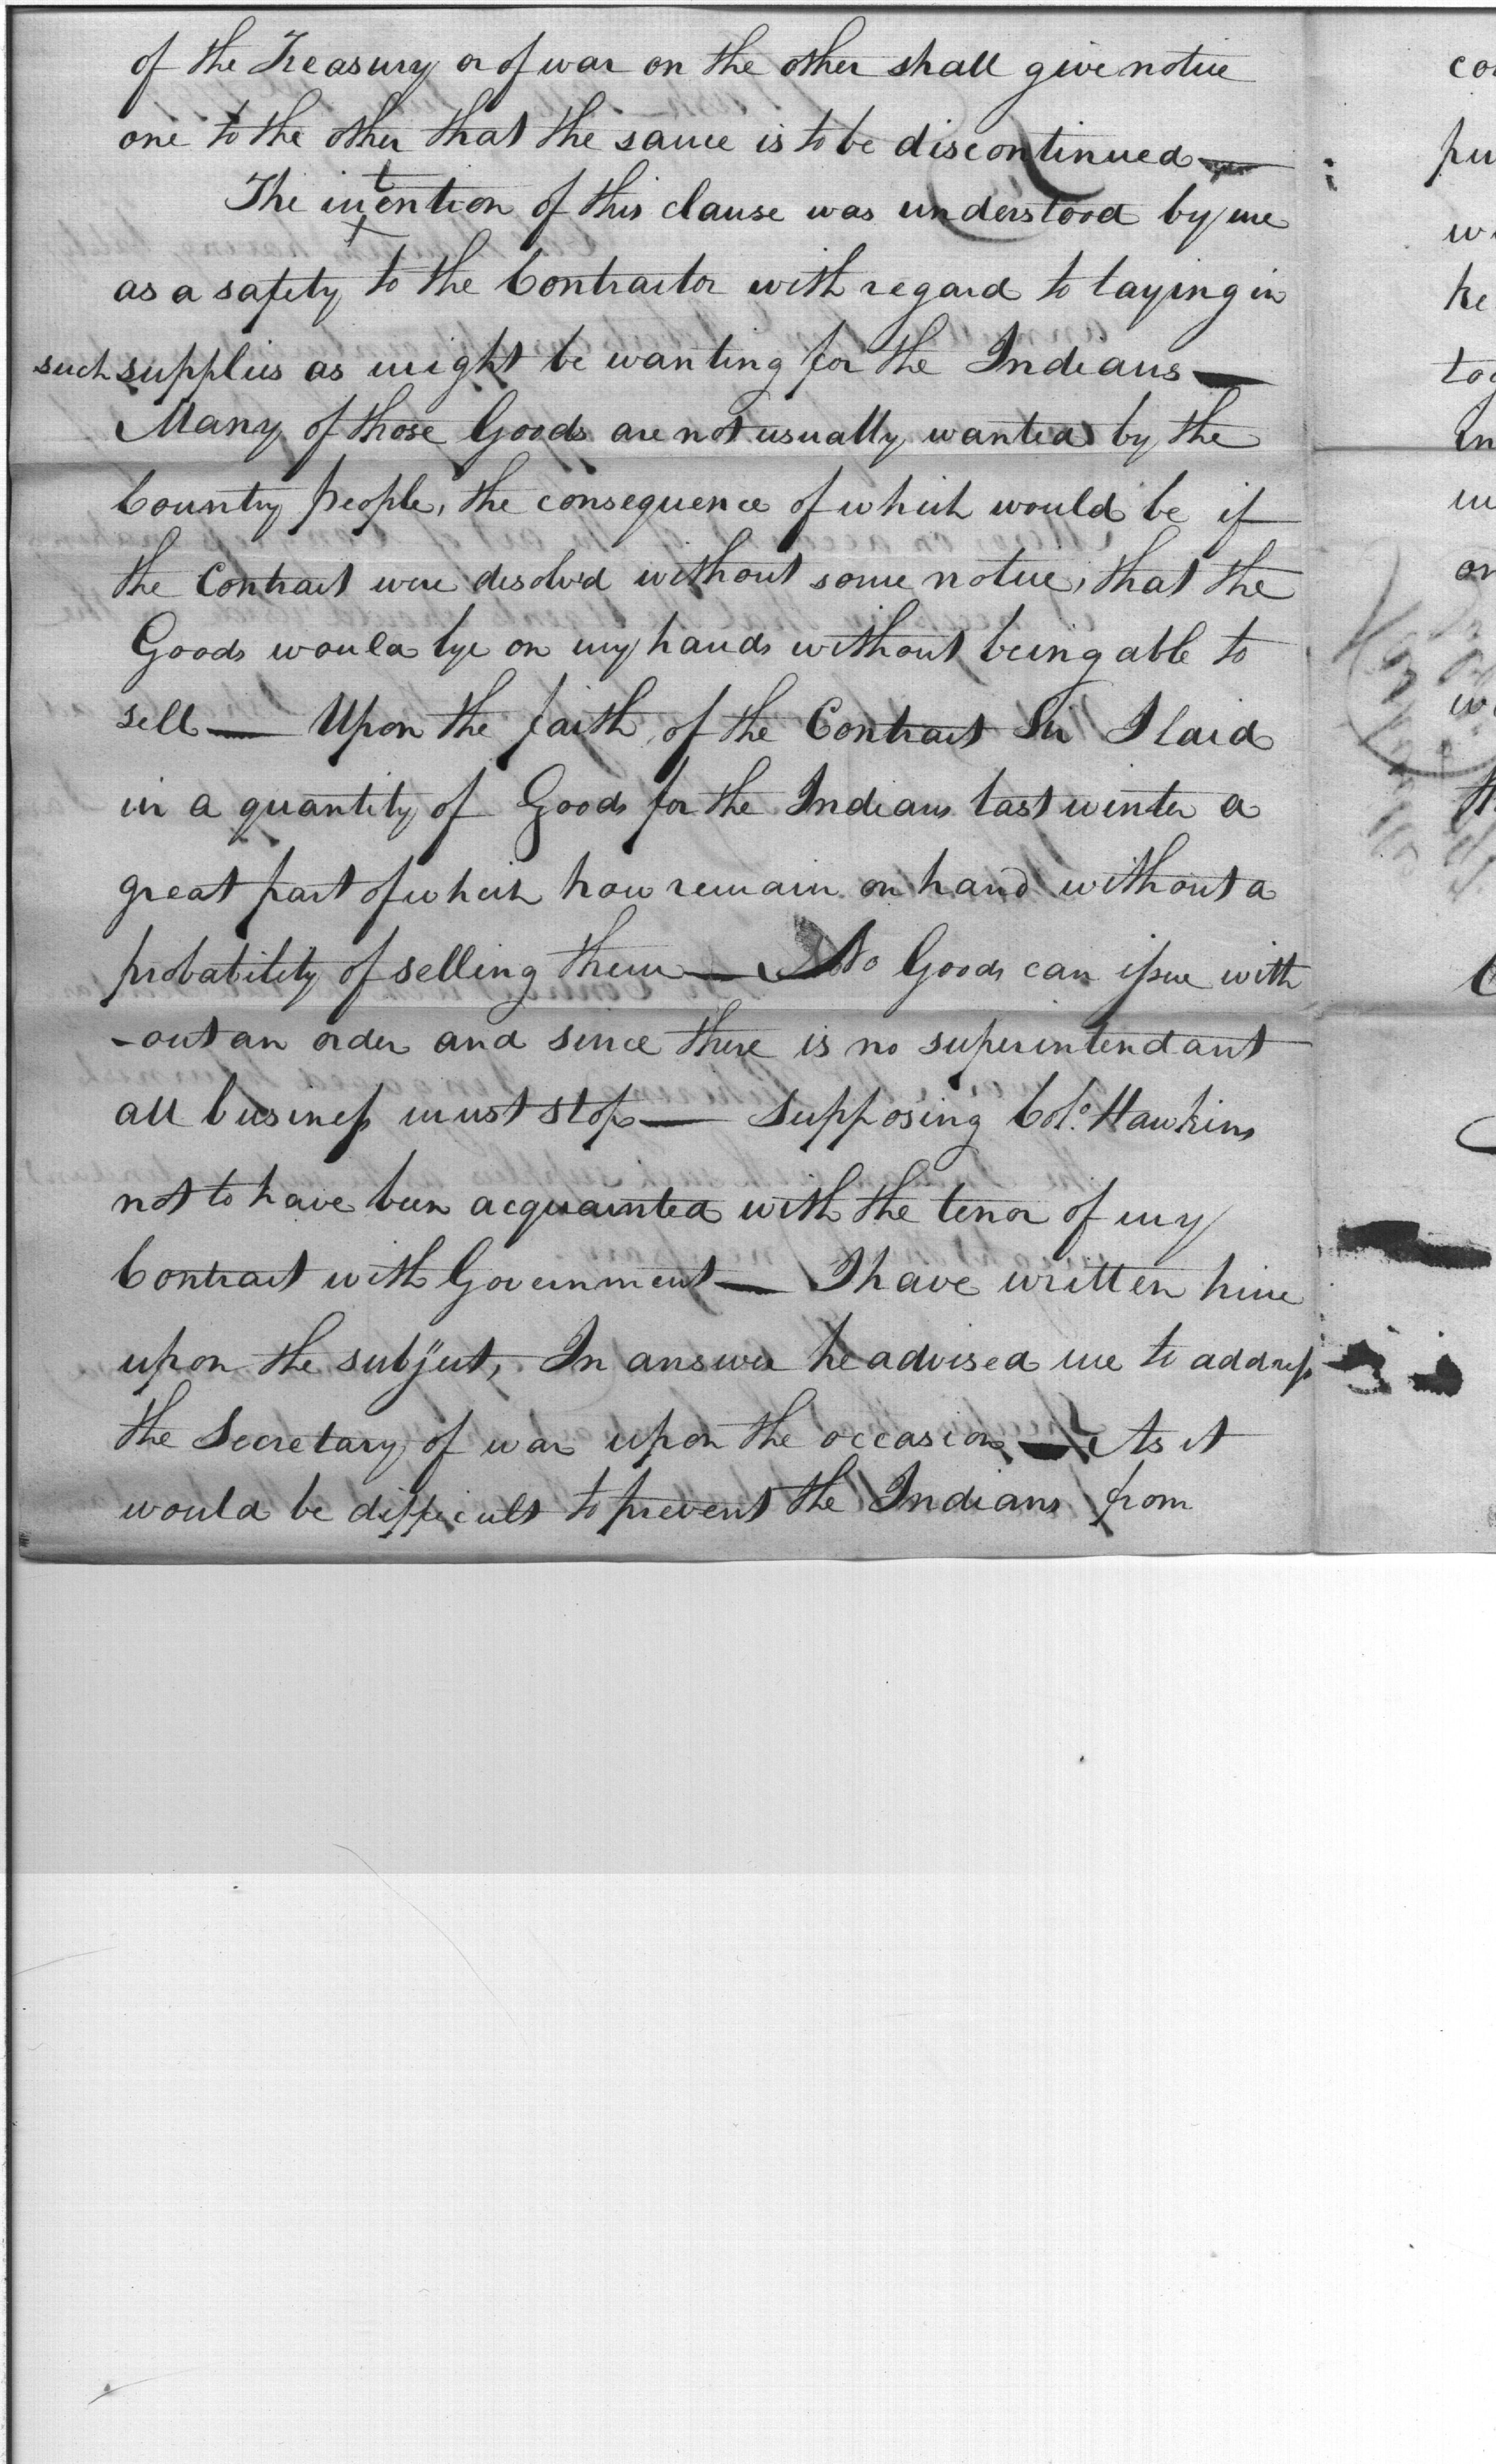 of the Treasury or of war on the other shall give notice
one to the other that the same is to be discontinued —
The intention of this clause was understood by me
as a safety to the Contractor with regard to laying in
such supplies as might be wanting for the Indians —
Many of those Goods are not usually wanted by the
Country people, the consequence of which would be if
the Contract were desolv'd without some notice, that the
Goods would lye on my hands without being able to
sell — Upon the faith of the Contract Sir I laid
in a quantity of Goods for the Indians last winter a
great part of which now remain on hand without a
probability of selling them — No Goods can issue with
-out an order and since there is no superintendant
all business must stop — Supposing Colo. Hawkins
not to have been acquainted with the tenor of my
Contract with Government — I have written him
upon the subject, In answer he advised me to address
the Secretary of war upon the occasion — As it
would be difficult to prevent the Indians from